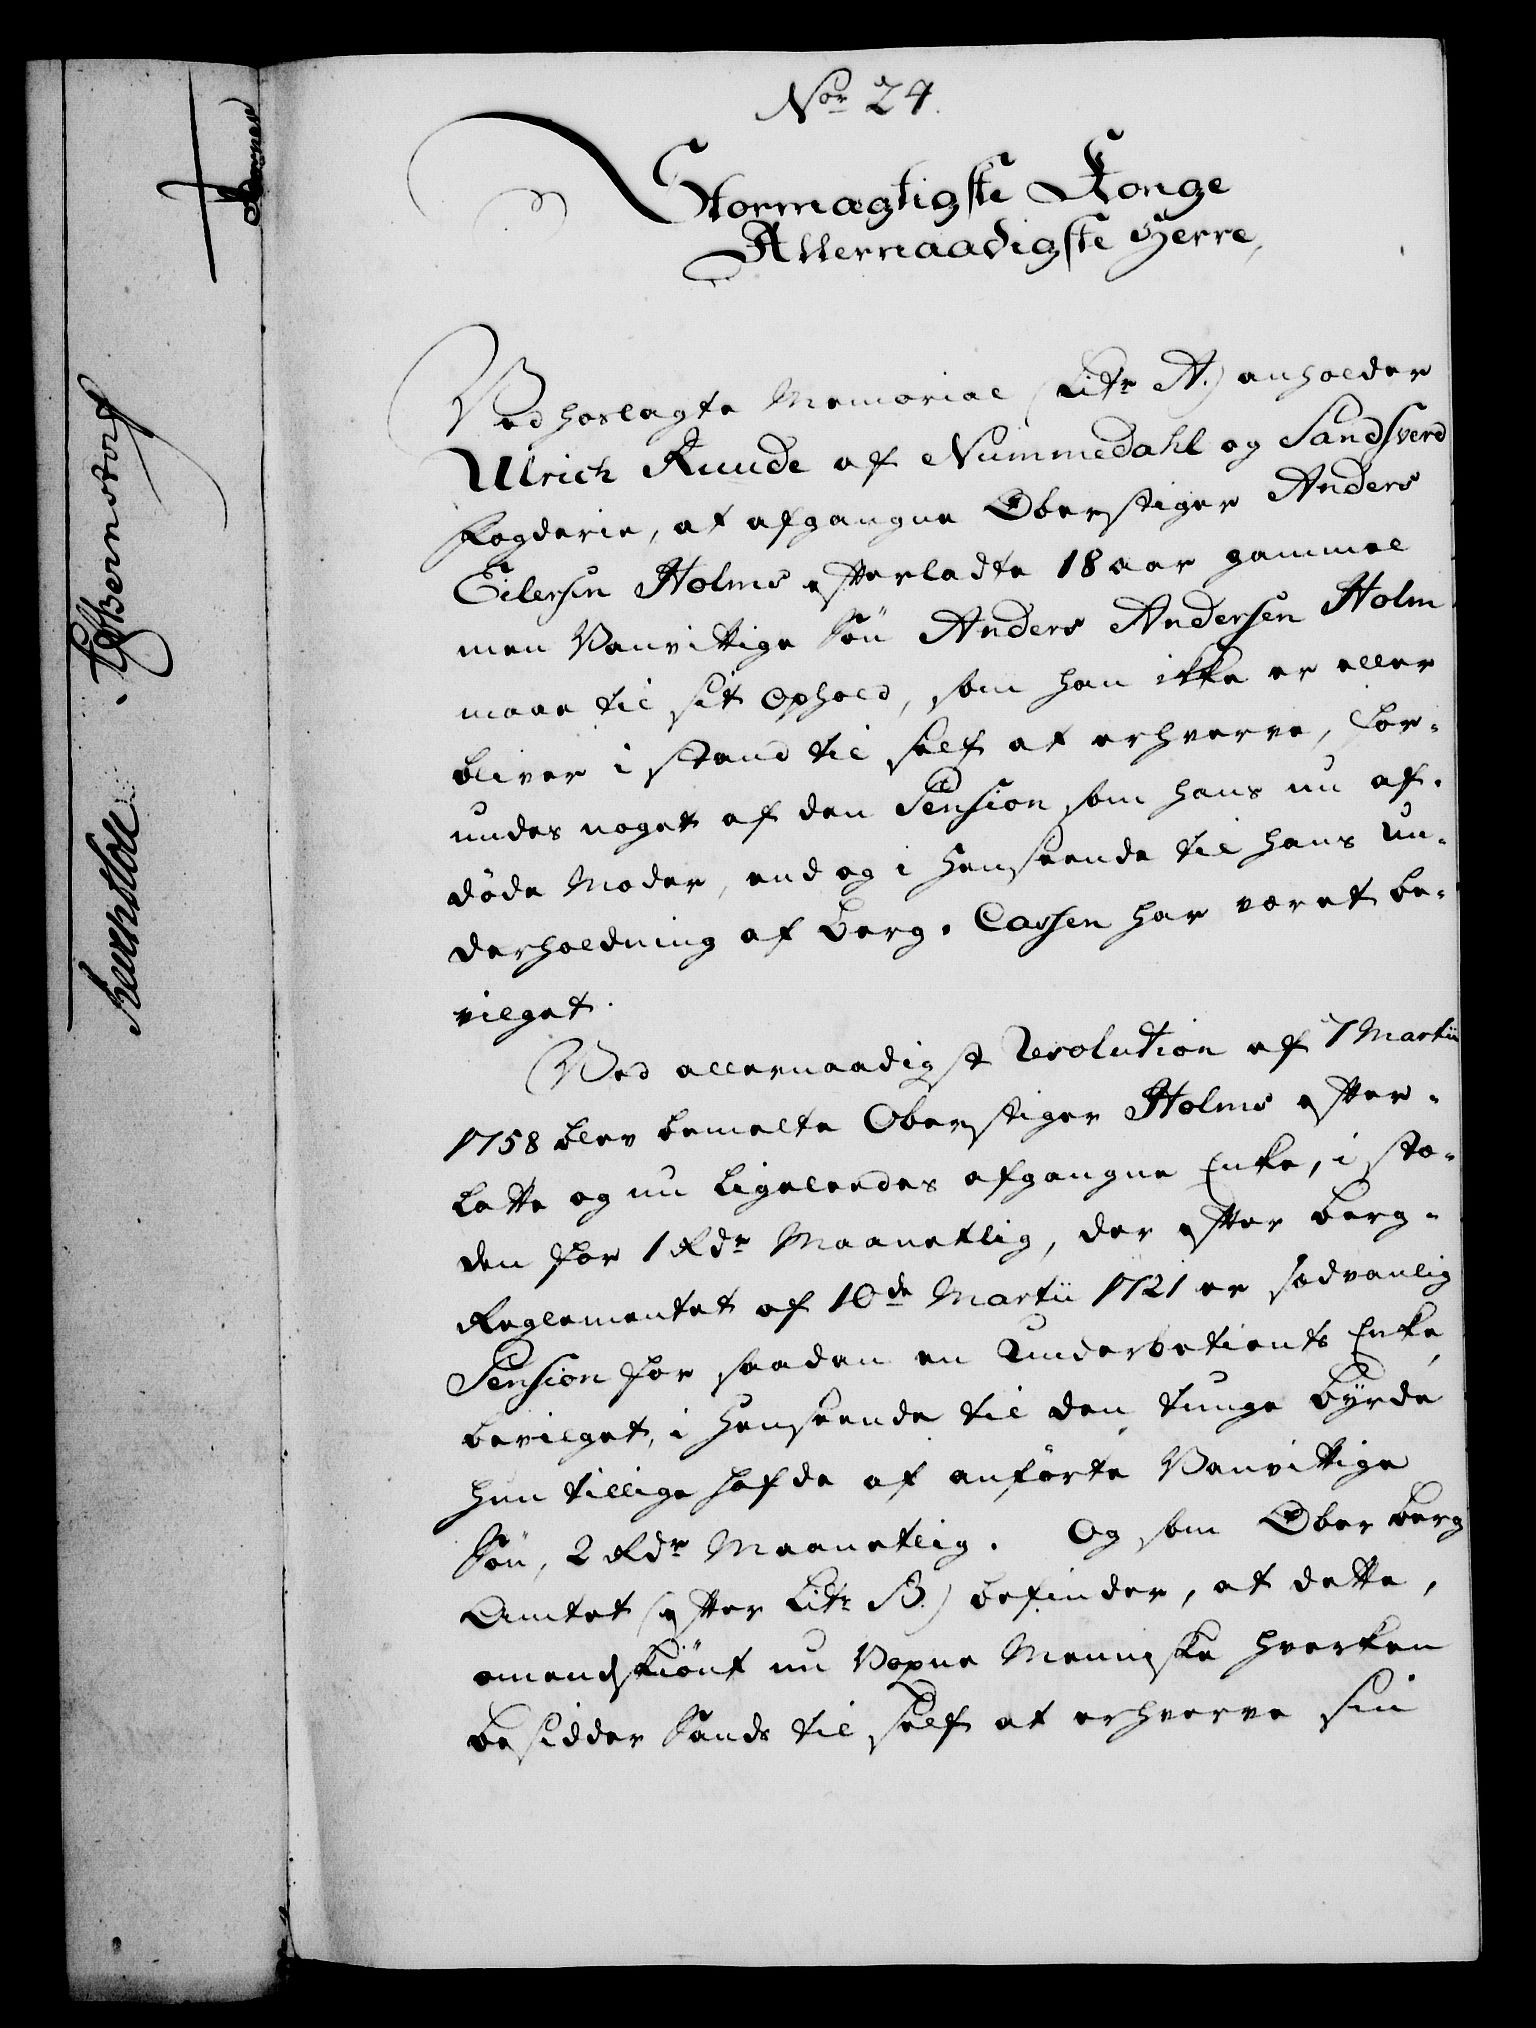 No 24.
Stormægtigste Konge
Allernaadigste Herre,
Ved hoslagte Memorial (Litr A.) anholder
Ulrich Ruude af Nummedahl og Sandsverd
Fogderie, at afgangne Oberstiger Anders
Eilersen Holms efterladte 18 aar gammel
men Vanvittige Søn Anders Andersen Holm
maae til sit Ophold, som han ikke er eller
bliver i stand til self at erhverve, for-
undes noget af den Pension som hans nu af-
døde Moder, end og i Henseende til hans Un-
derholdning af Berg-Cassen har været be-
vilget.
Ved allernaadigst Resolution af 7 Martii
1758 blev bemelte Oberstiger Holms efter-
latte og nu ligeledes afgangne Enke, i stæ-
den for 1 Rdr Maanetlig, der efter Berg-
Reglementet af 10de Martii 1721 er sædvanlig
Pension for saadan en Underbetients Enke,
bevilget, i Henseende til den tunge Byrde
hun tillige hafde af anførte Vanvittige
Søn, 2 Rdr Maanetlig. Og som Ober Berg
Amtet (efter Litr B.) befinder, at dette,
omendskiønt nu Voxne Menniske hverken
besidder Sands til self at erhverve sin
Bernstorf
Reventlow